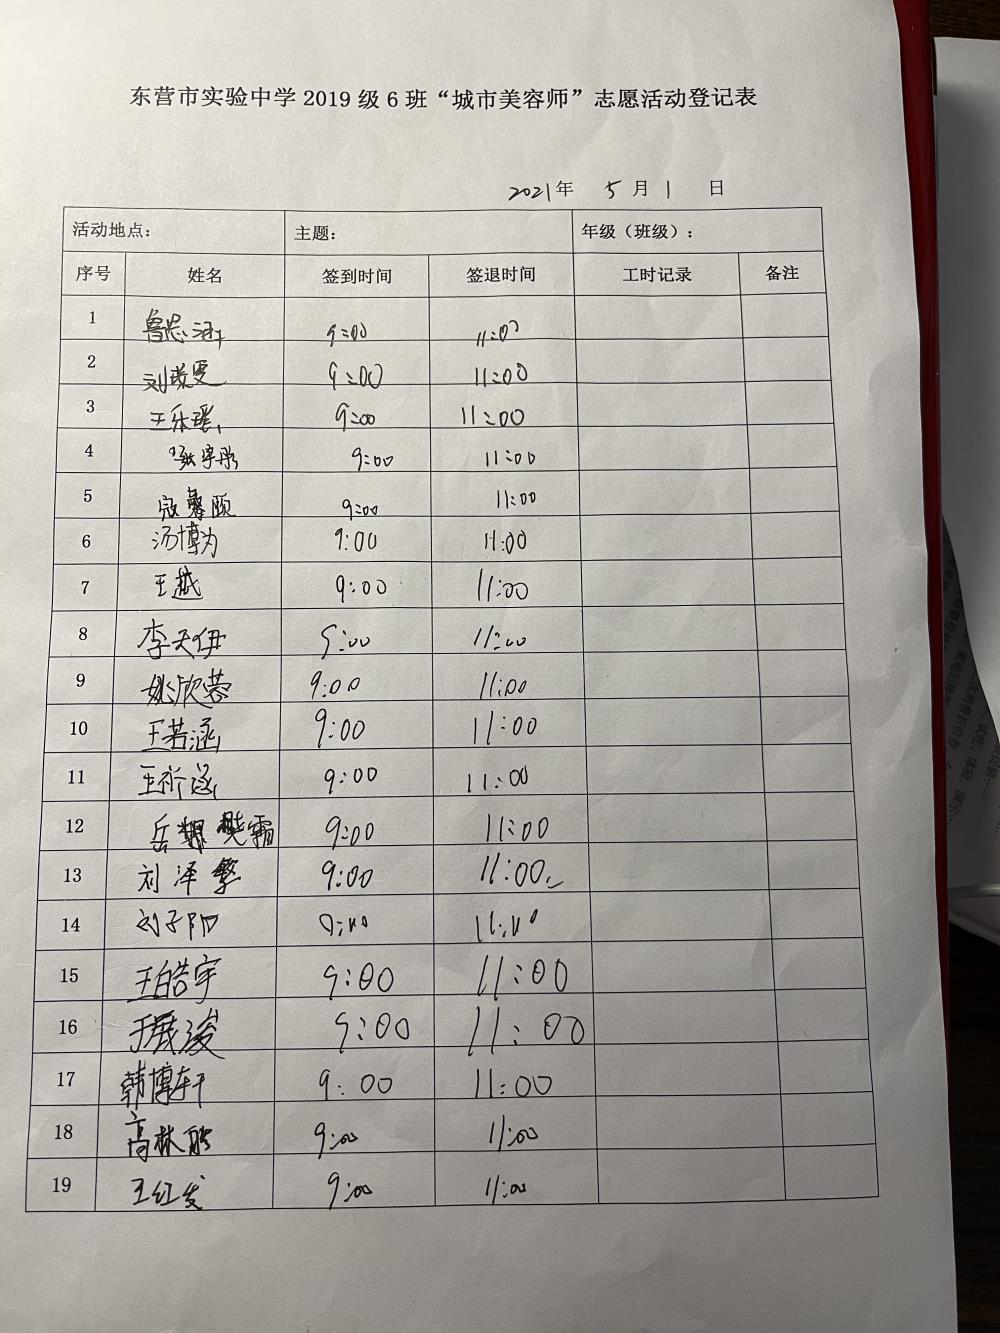 东营市实验中学 2019 级 6 班“城市美容师”志愿活动登记表
2021年 5月1日
活动地点： 主题： 年级（班级）：
序号 姓名 签到时间 签退时间 工时记录 备注
1 鲁思涵 9:00 11:00
2 刘璇雯 9:00 11:00
3 王乐瑶 9:00 11:00
4 张宇彤 9:00 11:00
5 寇馨颐 9:00 11:00
6 汤博为 9:00 11:00
7 王越 9:00 11:00
8 李天伊 9:00 11:00
9 姚欣蓉 9:00 11:00
10 王若涵 9:00 11:00
11 王祈涵 9:00 11:00
12 岳樊霜 9:00 11:00
13 刘泽擎 9:00 11:00
14 刘子阳 11:
15 王皓宇 9:00 11:00
16 于展浚 9:00 11:00
17 韩博轩 9:00 11:00
18 高林 9:00 11:00
19 王红发 9:00 11:00